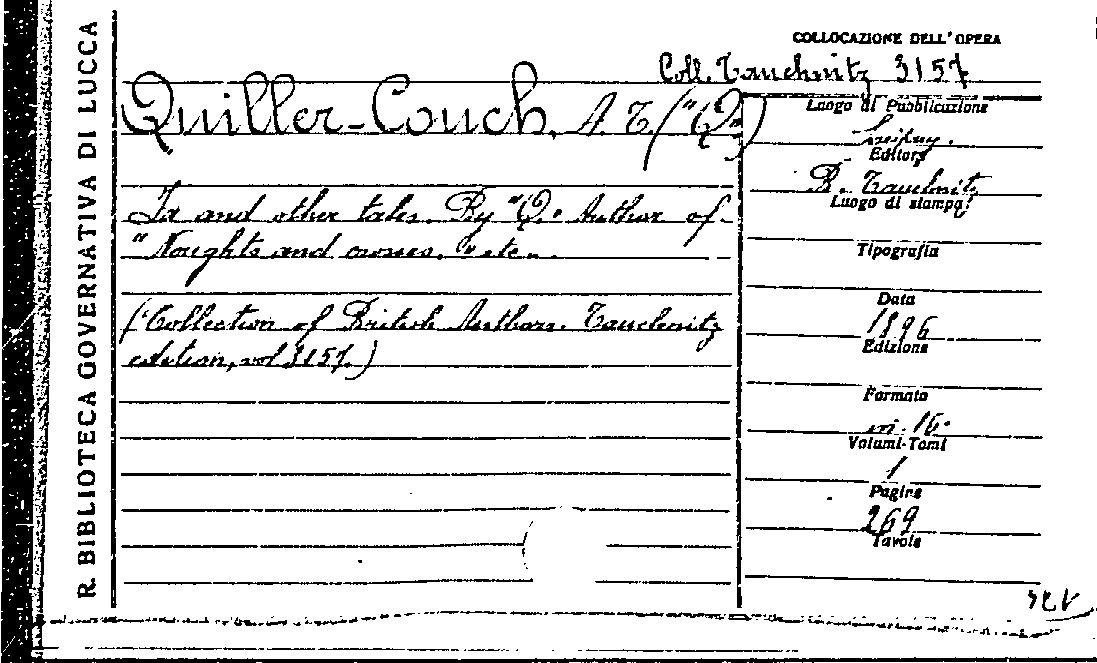 R. BIBLIOTECA GOVERNATIVA DI LUCCA
COLLOCAZIONE DELL'OPERA
Coll. Tauchnitz 3157
Quiller-Couch, A. T. ("Q")
Ia and other tales. By "Q". Author of
"Noughts and crosses," etc.
("Collection of British Authors. Tauchnitz
edition, vol. 3157.)
Luogo di Pubblicazione
Editore
B. Tauchnitz
Luogo di stampa
Tipografia
Data
1896
Edizione
Formato
in 16°
Volumi-Tomi
1
Pagine
269
Tavole